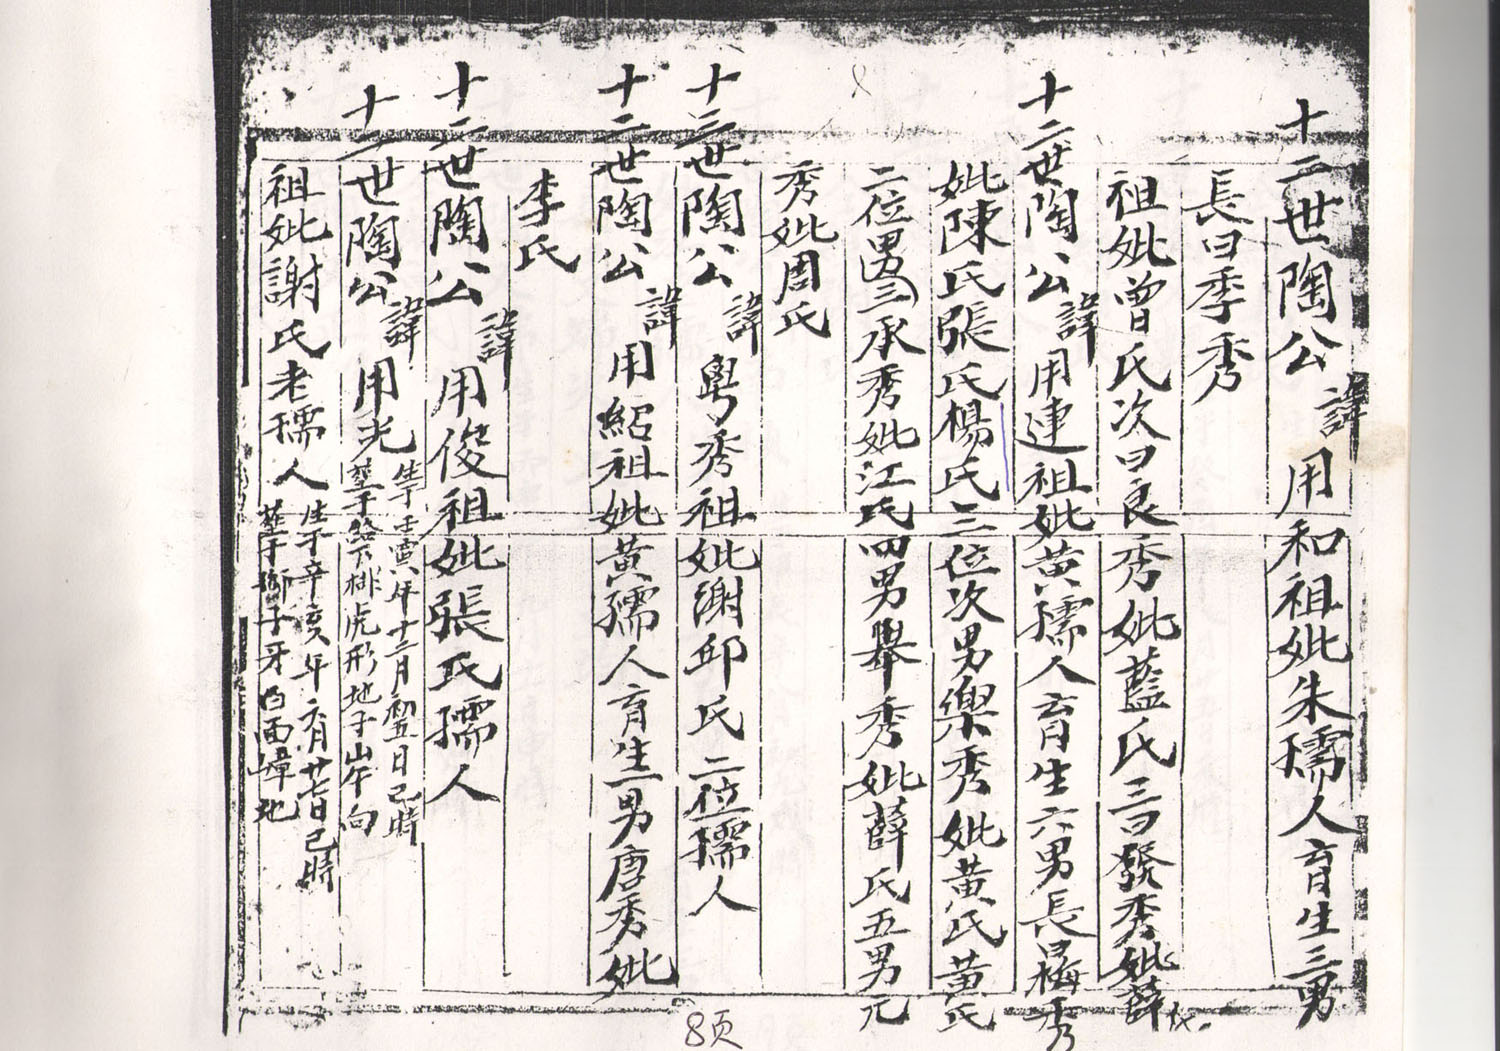 十二世陶公諱用和祖妣朱孺人育生三男
長曰季秀
祖妣曾氏次曰良秀妣藍氏三曰發秀妣薛
十二世陶公諱用連祖妣黄孺人育生六男長曰梅秀
妣陳氏張氏楊氏三位次男樂秀妣黄氏黄氏
二位男三承秀妣江氏四男舉秀妣薛氏五男元
秀妣周氏
十三世陶公諱粤秀祖妣謝邱氏二位孺人
十二世陶公諱用紹祖妣黄孺人育生一男唐秀妣
李氏
十二世陶公諱用俊祖妣張氏孺人
十二世陶公諱用光生于壬寅年十二月初五日己時
塟于發下排虎形地子山午向
祖妣謝氏老孺人生于辛亥年六月廿七日己時
塟于獅子牙白面嶂地
8页